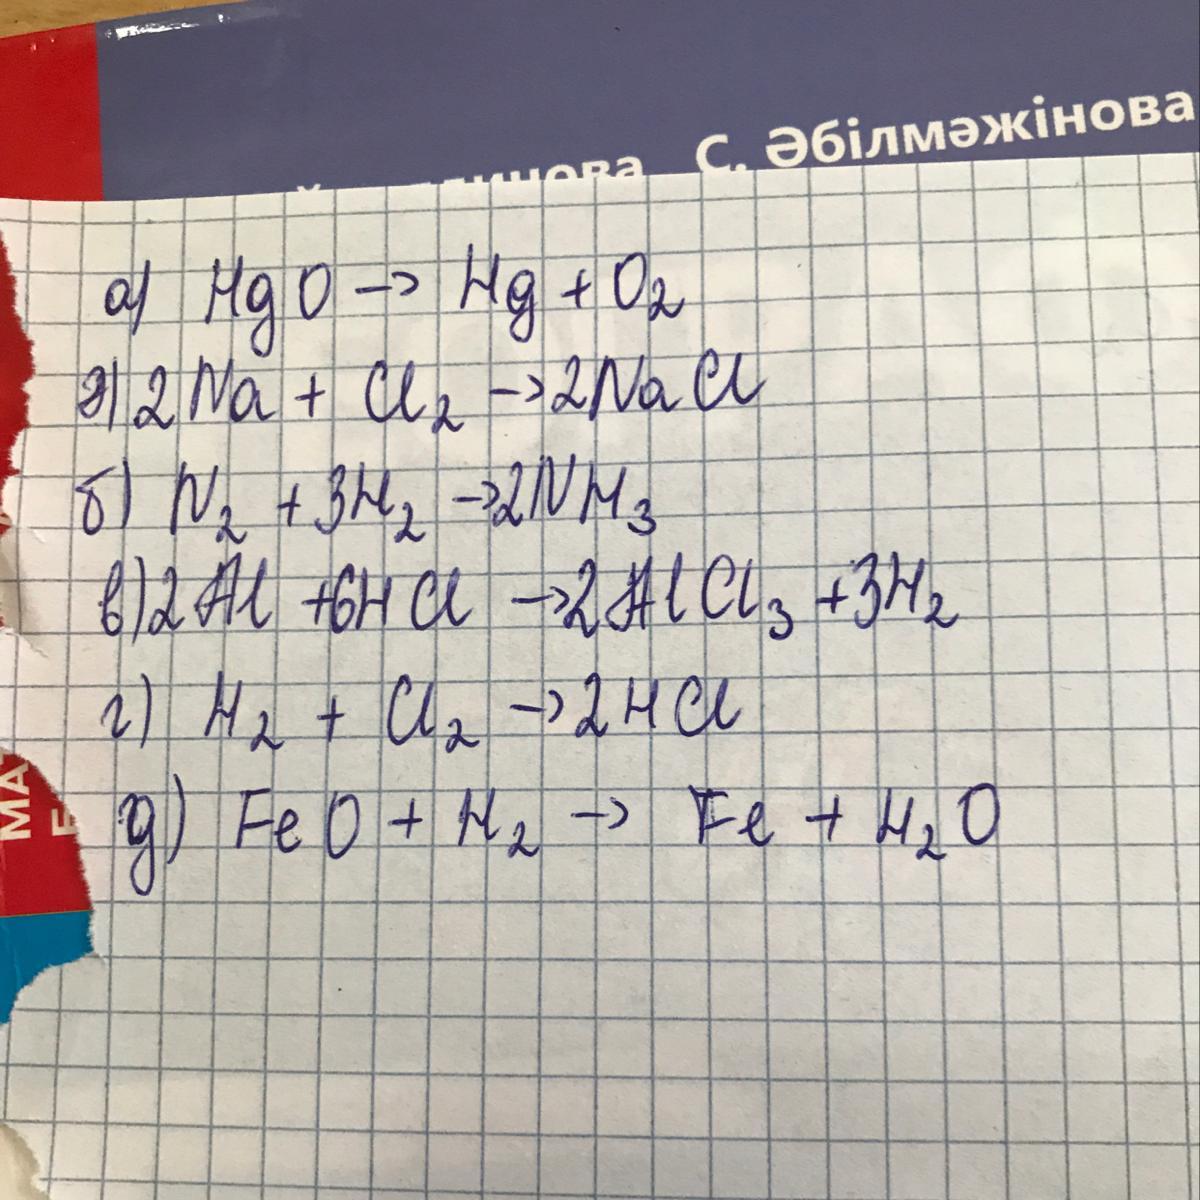 С. Әбілмәжінова
а) HgO → Hg + O₂
ә) 2Na + Cl₂ → 2NaCl
б) N₂ + 3H₂ → 2NH₃
в) 2Al + 6HCl → 2AlCl₃ + 3H₂
г) H₂ + Cl₂ → 2HCl
МА
д) FeO + H₂ → Fe + H₂O